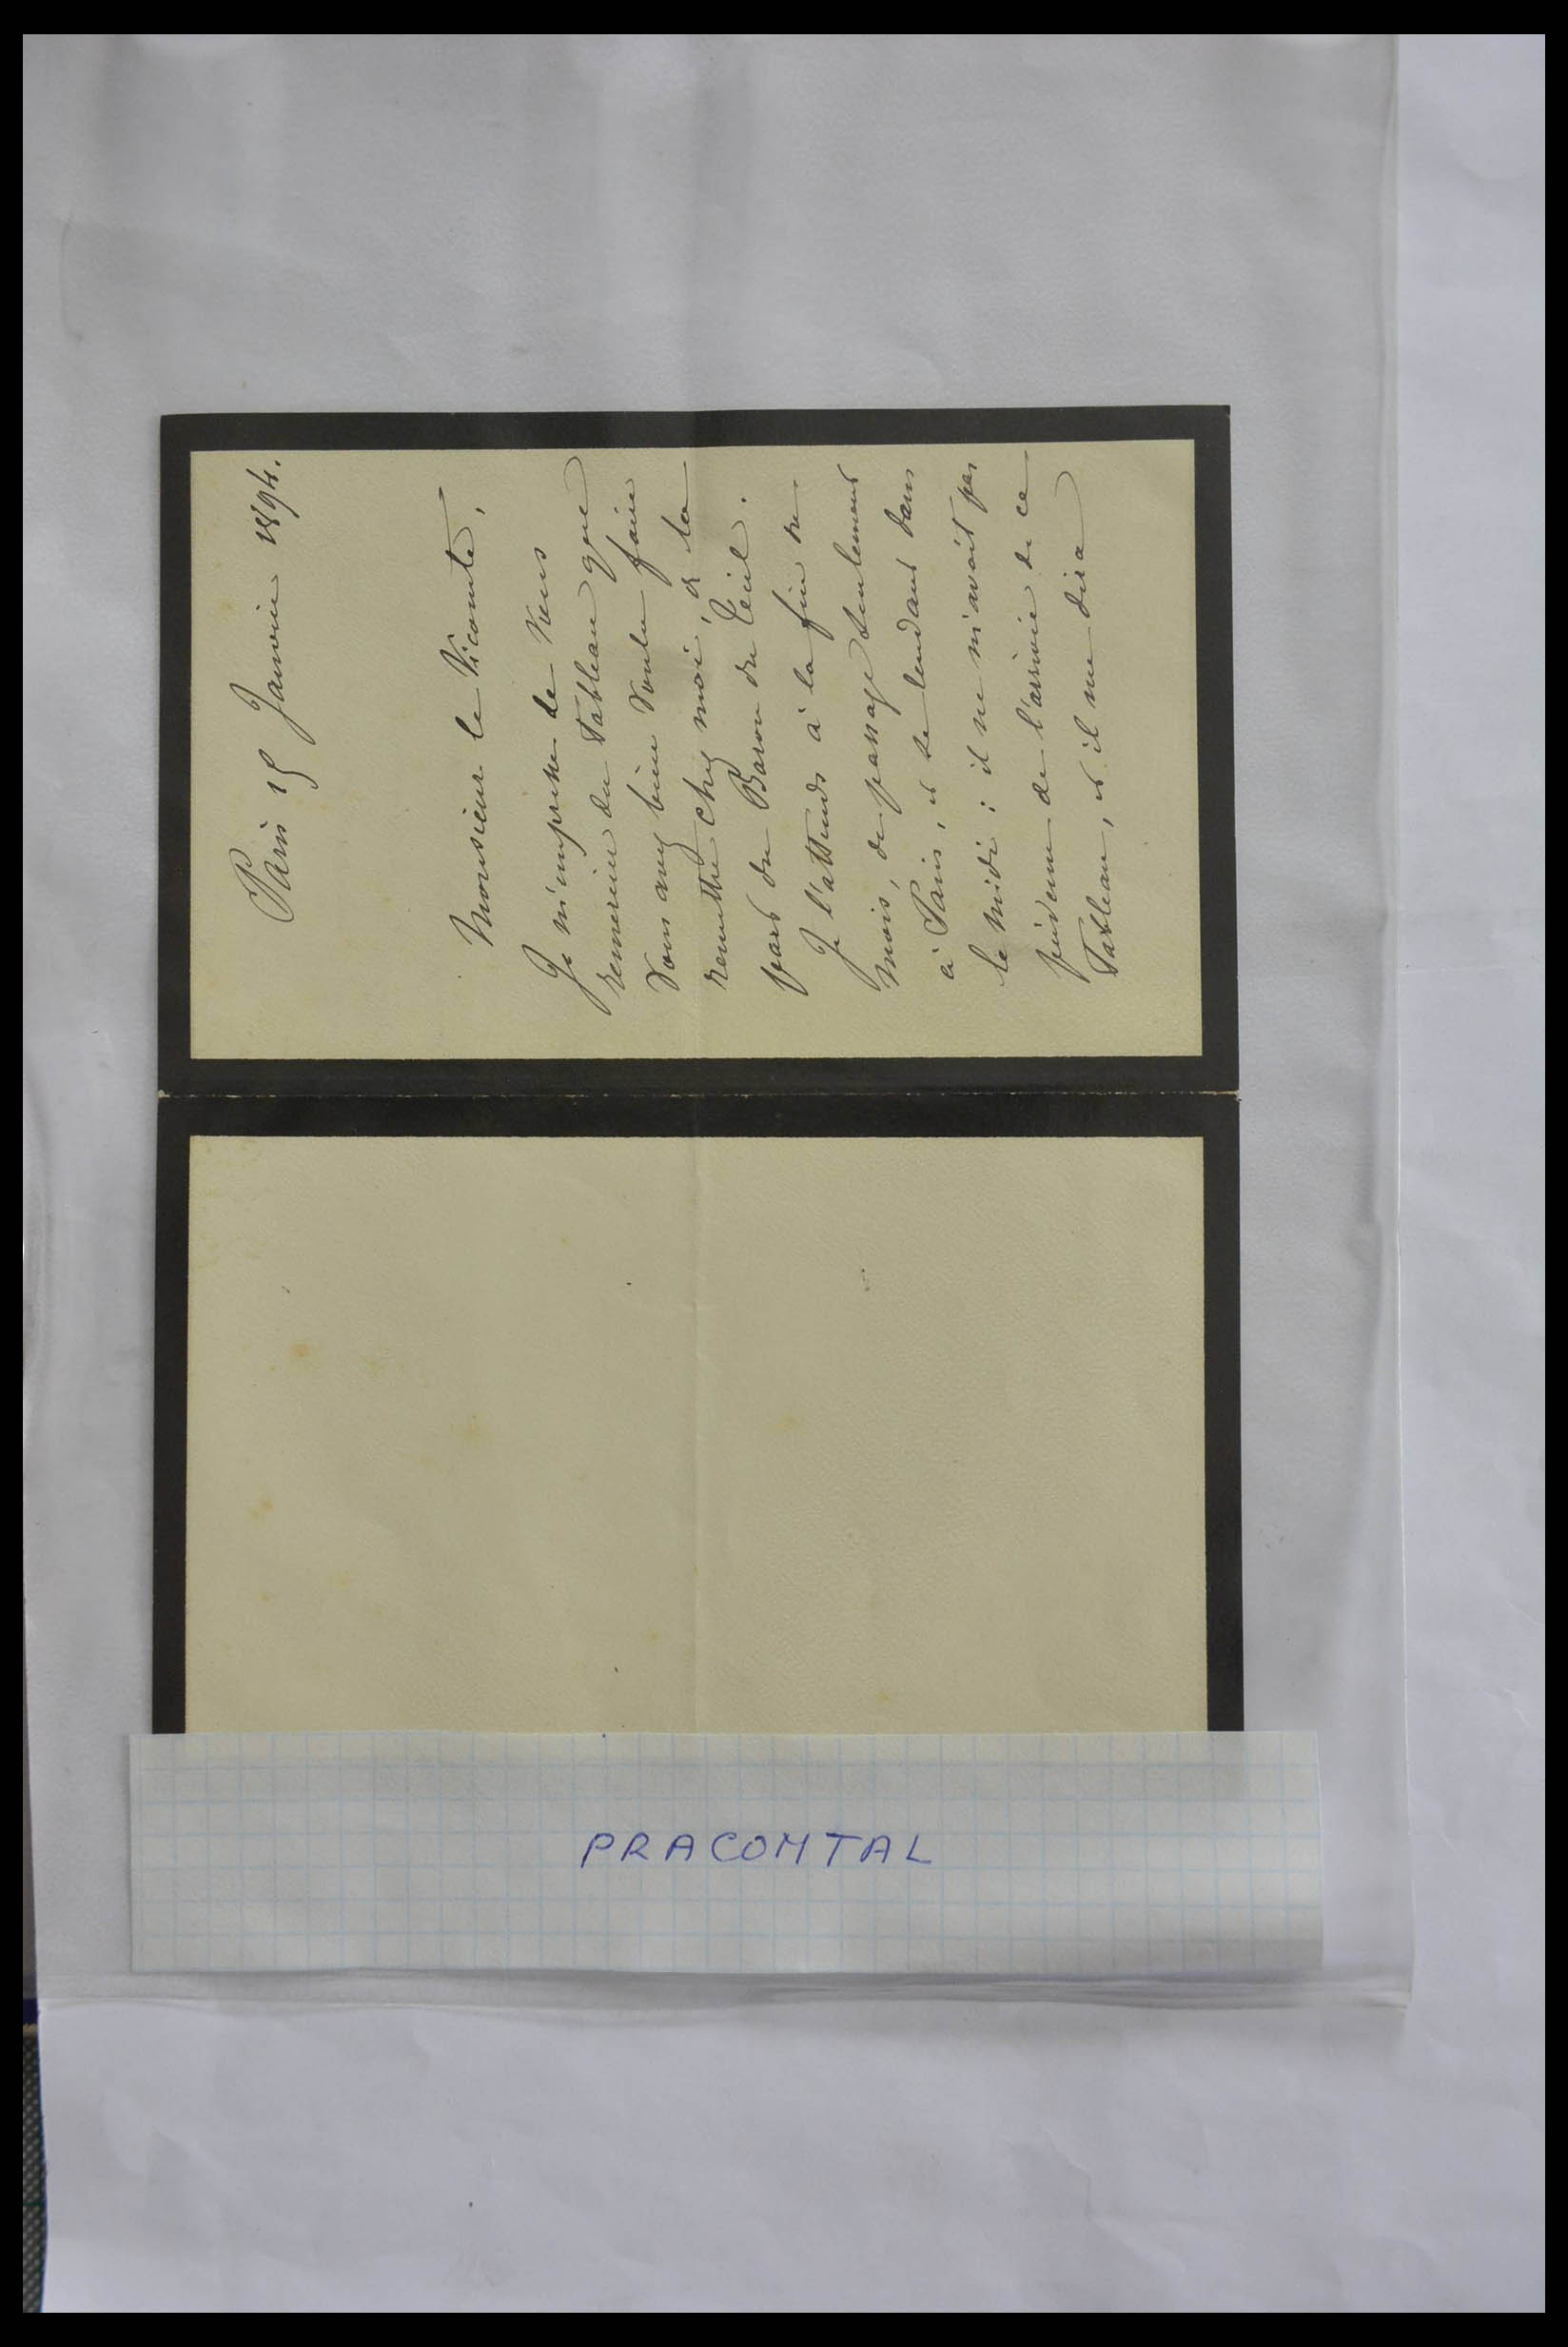 Paris 15 Janvier 1894.
Monsieur le Vicomte,
Je m'empresse de vous
remercier du Tableau que
vous avez bien voulu faire
remettre chez moi, de la
part du Baron du Teil.
Je l'attends à la fin du
mois, de passage seulement
à Paris, et se rendant dans
le midi : il ne m'avait pas
prévenu de l'arrivée de ce
Tableau, et il me dira
PRACOMTAL